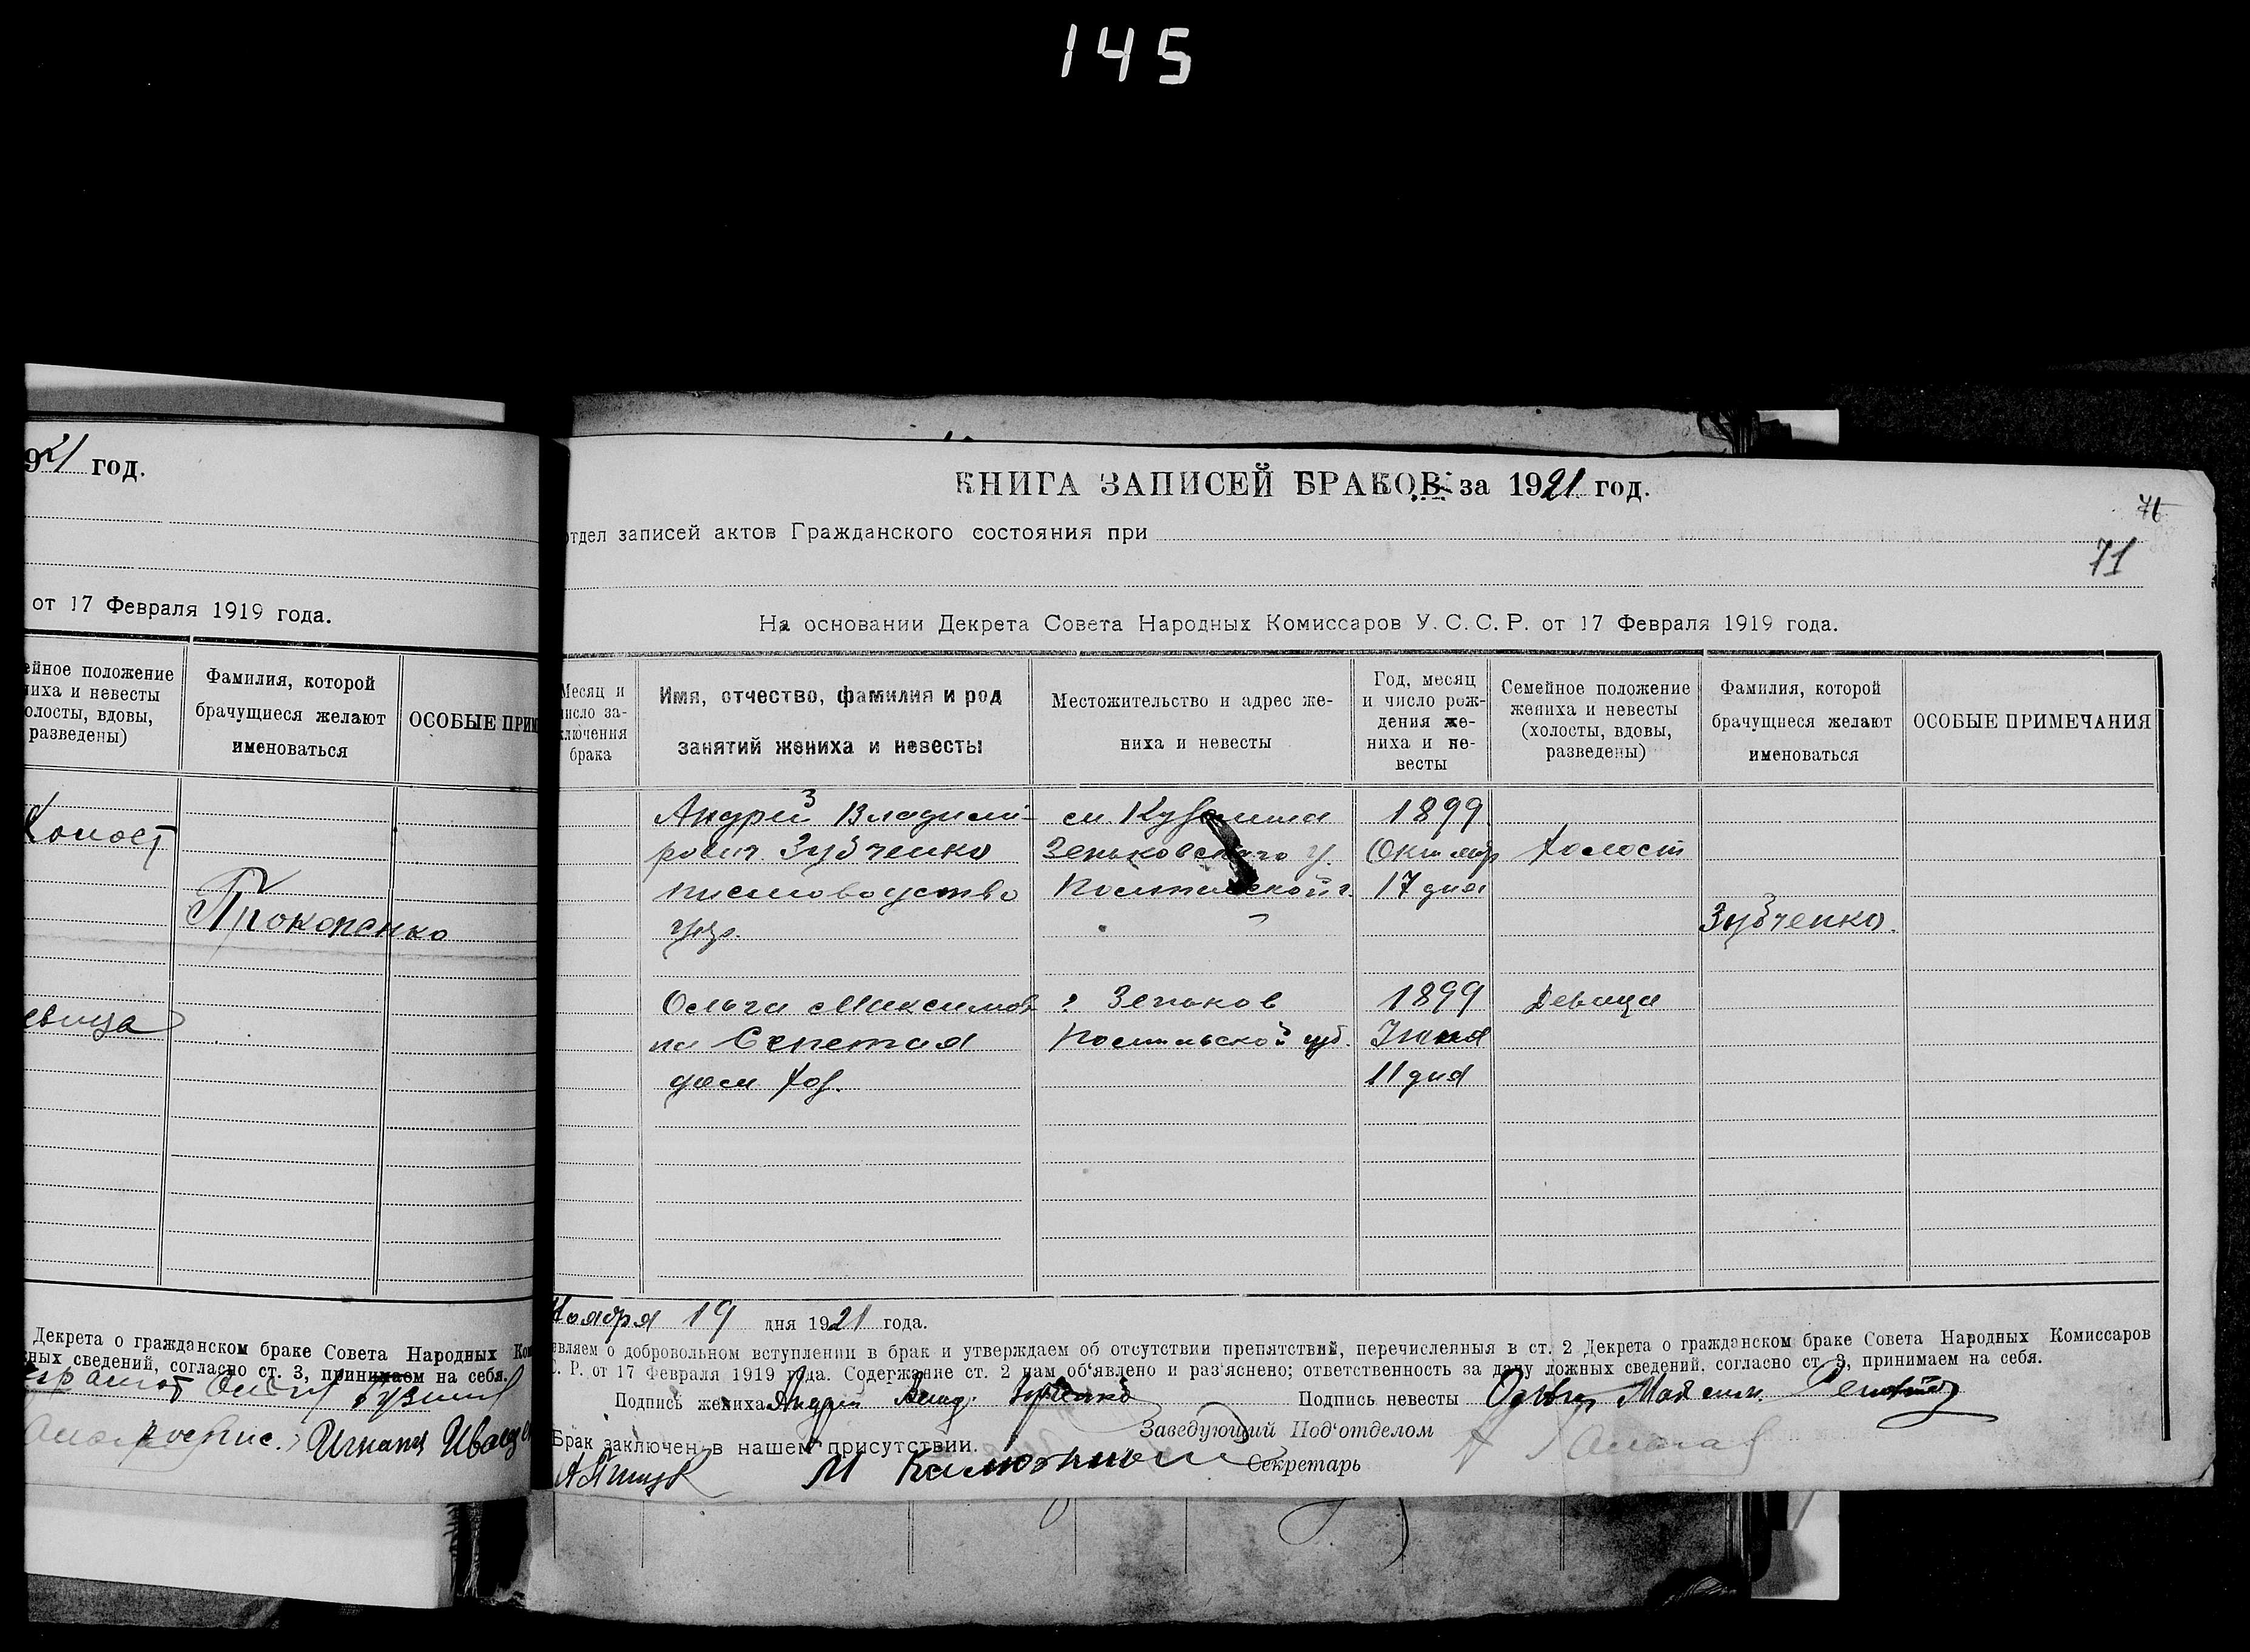 145
921 год.
от 17 Февраля 1919 года.
ейное положение
ниха и невесты
олосты, вдовы,
разведены)
Фамилия, которой
брачущиеся желают
именоваться
ОСОБЫЕ ПРИМ
Холост
Прокопенко
евица
Декрета о гражданском браке Совета Народных Ком
ных сведений, согласно ст. 3, принимаем на себя.
КНИГА ЗАПИСЕЙ БРАКОВ за 1921 год.
71
отдел записей актов Гражданского состояния при
На основании Декрета Совета Народных Комиссаров У. С. С. Р. от 17 Февраля 1919 года.
Месяц и
число за-
ключения
брака
Имя, отчество, фамилия и род
занятий жениха и невесты
Местожительство и адрес же-
ниха и невесты
Год, месяц
и число рож-
дения же-
ниха и не-
весты
Семейное положение
жениха и невесты
(холосты, вдовы,
разведены)
Фамилия, которой
брачущиеся желают
именоваться
ОСОБЫЕ ПРИМЕЧАНИЯ
Андрей Владими- 1899
рович Зубченко Зеньковского у. Октябр холост
писмоводство 17 дня
Зубченко
Ольга Максимов Зеньков 1899 девица
на губ. Июня
дом хоз. 11 дня
Ноября 19 дня 1921 года.
являем о добровольном вступлении в брак и утверждаем об отсутствии препятствий, перечисленныя в ст. 2 Декрета о гражданском браке Совета Народных Комиссаров
С. Р. от 17 Февраля 1919 года. Содержание ст. 2 нам об'явлено и раз'яснено; ответственность за дачу ложных сведений, согласно ст. 3, принимаем на себя.
Подпись жениха Андрей Зубченко Подпись невесты
Заведующий Под'отделом
Брак заключен в нашем присутствии.
М Калюжный Секретарь